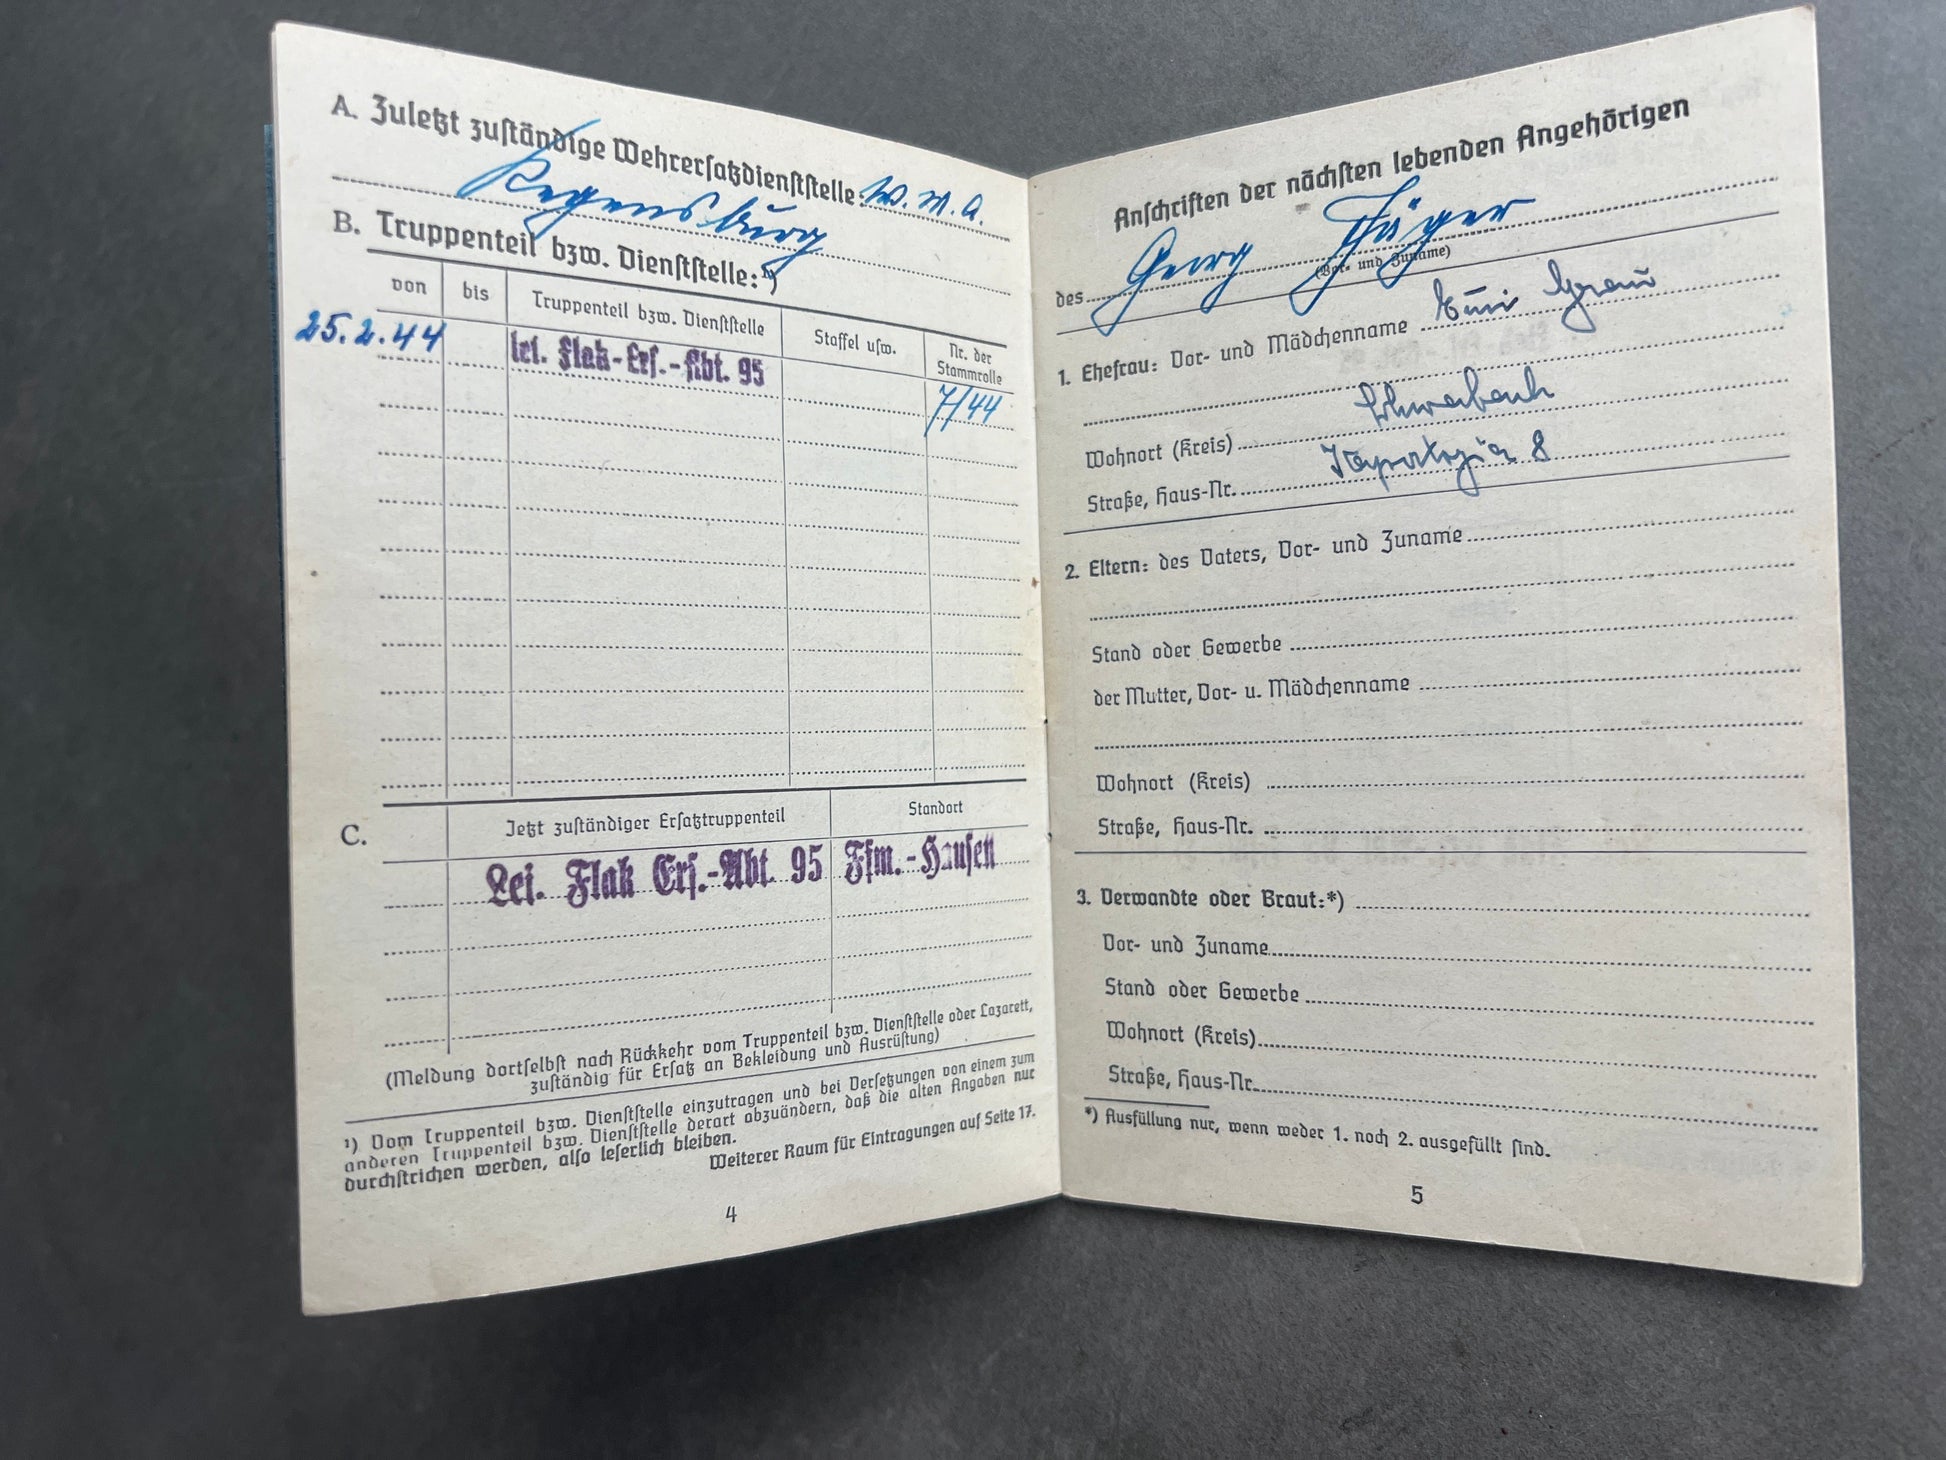 A. Zuletzt zuständige Wehrersatzdienststelle: W. M. A.
Regensburg
B. Truppenteil bzw. Dienststelle:¹)
von bis Truppenteil bzw. Dienststelle Staffel usw. Nr. der Stammrolle
25.2.44 lei. Flak-Ers.-Abt. 95 7/44
C. Jetzt zuständiger Ersatztruppenteil Standort
Lei. Flak Ers.-Abt. 95 Ffm.-Hausen
(Meldung dortselbst nach Rückkehr vom Truppenteil bzw. Dienststelle oder Lazarett,
zuständig für Ersatz an Bekleidung und Ausrüstung)
¹) Vom Truppenteil bzw. Dienststelle einzutragen und bei Versetzungen von einem zum
anderen Truppenteil bzw. Dienststelle derart abzuändern, daß die alten Angaben nur
durchstrichen werden, also leserlich bleiben.
Weiterer Raum für Eintragungen auf Seite 17.
4
Anschriften der nächsten lebenden Angehörigen
des Georg Jäger
(Vor- und Zuname)
1. Ehefrau: Vor- und Mädchenname
Wohnort (Kreis)
Straße, Haus-Nr. 8
2. Eltern: des Vaters, Vor- und Zuname
Stand oder Gewerbe
der Mutter, Vor- u. Mädchenname
Wohnort (Kreis)
Straße, Haus-Nr.
3. Verwandte oder Braut:*)
Vor- und Zuname
Stand oder Gewerbe
Wohnort (Kreis)
Straße, Haus-Nr.
*) Ausfüllung nur, wenn weder 1. noch 2. ausgefüllt sind.
5